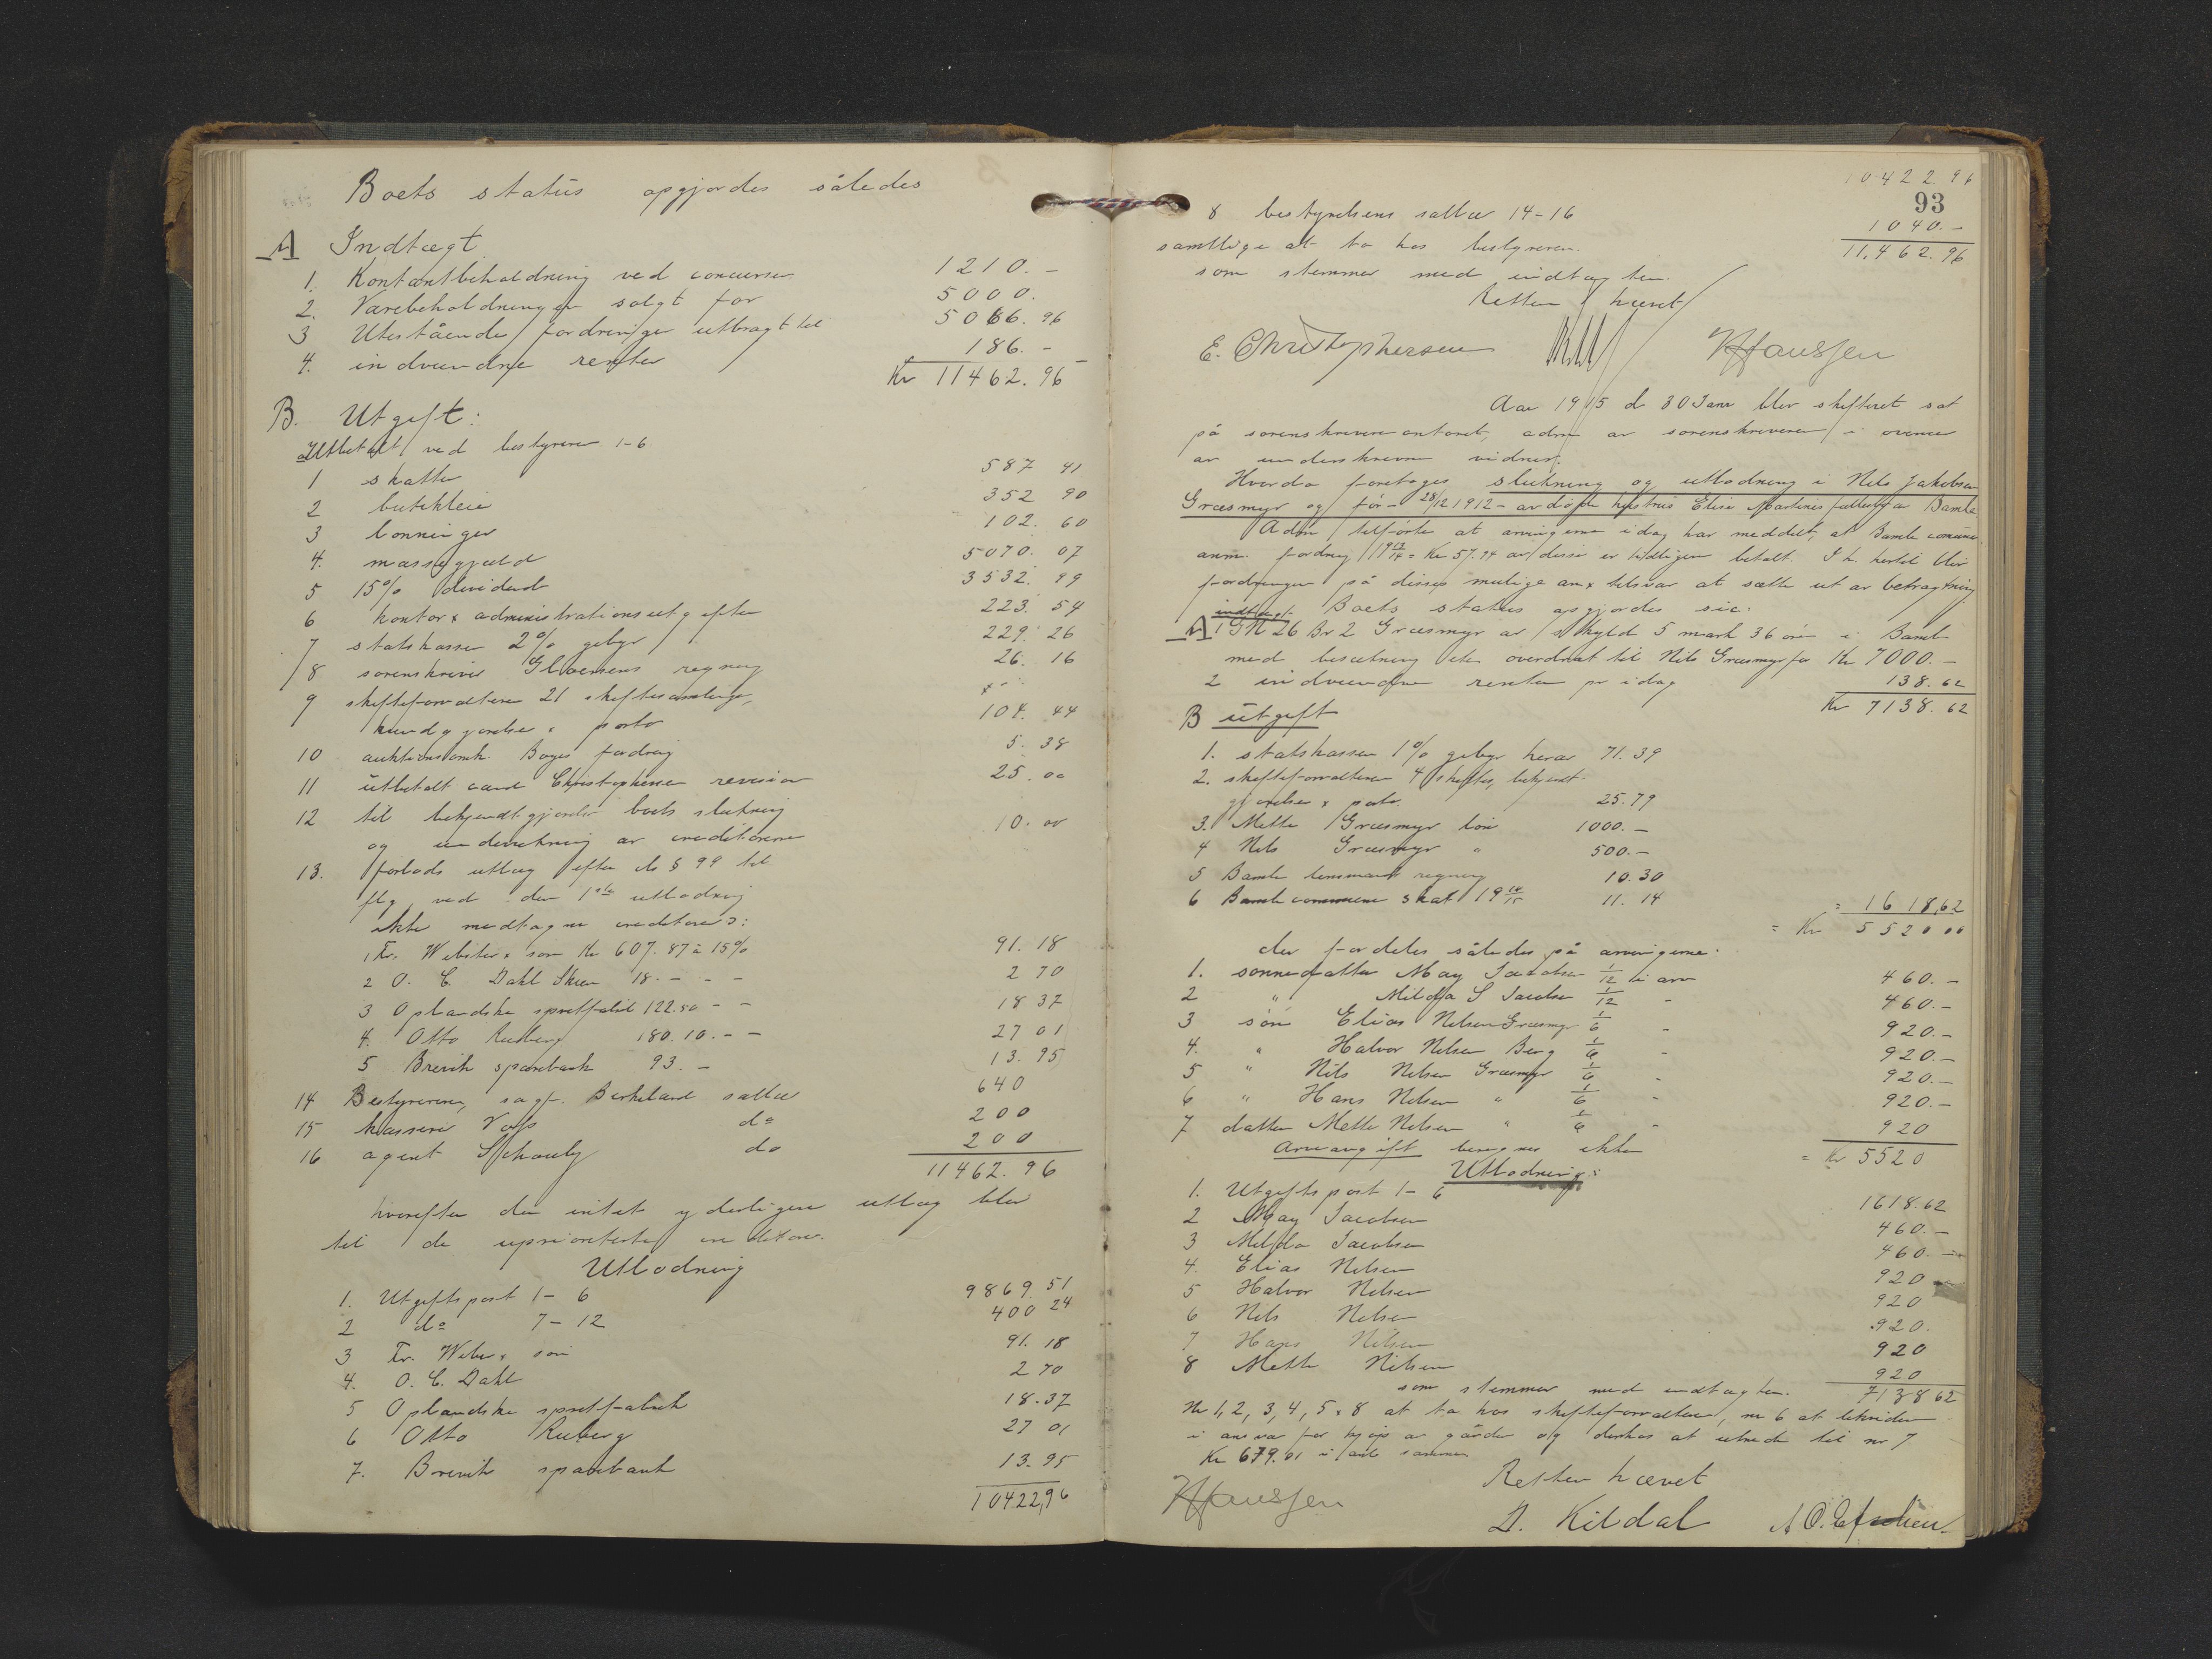 Boets status opgjordes således
A Indtægt
1. Kontantbeholdning ved concursen 1210.-
2. Varebeholdningen solgt for 5000.
3 Utestående fordringer utbragt til 5066.96
4. indvundne renter 186.-
Kr 11462.96
B. Utgift:
a Utbetalt ved bestyreren 1-6
1 skatter 587 41
2 butikleie 352 90
3 lønninger 102.60
4. massegjæld 5070.07
5 15% dividende 3532.99
6 kontor & administrationsutgifter 223.54
7 statskassen 2% gebyr 229.26
8 sorenskriver Gloersens regning 26.16
9 skifteforvalteren 21 skiftesamlinger,
kundgjørelse & porto 104.44
10 auktionsomk. Boyes fordring 5.38
11 utbetalt cand Christophersen revision 25.00
12 til bekjendtgjørelse boets slutning
og underretning av creditorerne 10.00
13. forlods utlæg efter kl § 99 til
flg. ved den 1ste utlodning
ikke medtagne creditorer:
1 Fr. Weber & søn Kr 607.87 à 15% 91.18
2 O. C. Dahl Skien 18.- - - 2 70
3 Oplandske spritfabrik 122.50 - - 18 37
4. Otto Ruberg 180.10. - - 27 01
5 Brevik sparebank 93.- 13.95
14 Bestyreren, sagf. Birkeland sallær 640
15 kasserer Voss do 200
16 agent Schouby do 200
11462.96
hvorefter der intet yderligere utlæg blev
til de uprioriterte creditorer.
Utlodning
1. Utgiftspost 1-6 9869.51
2 do 7-12 400 24
3 Fr. Weber & søn 91.18
4. O. C. Dahl 2 70
5 Oplandske spritfabrik 18.37
6 Otto Ruberg 27 01
7. Brevik sparebank 13.95
10422,96
10422.96
93
8 bestyrelsens sallær 14-16 1040.-
samtlige at ta hos bestyreren. 11,462.96
som stemmer med indtægten.
Retten hævet
E. Christophersen HHanssen
Aar 1915 d 30 Janr blev skifteret sat
på sorenskriverkontoret, adm av sorenskriveren i overvær
av underskrevne vidner.
Hvorda foretoges slutning og utlodning i Nils Jakobsen
Græsmyr og før - 28/12 1912 - avdøde hustrus Elise Martines fællesbo av Bamle
Adm tilførte at arvingerne idag har meddelt, at Bamle commune
anm. fordring 19 13/14 = Kr 57.94 av disse er tidligere betalt. I h. hertil blir
fordringen på disses mulige anx tilsvar at sætte ut av betragtning
indtægt Boets status opgjordes sic:
A 1 GN 26 Br 2 Græsmyr av skyld 5 mark 36 øre i Bamle
med besætning etc overdrat til Nils Græsmyr for Kr 7000.-
2 indvundne renter pr idag 138.62
Kr 7138.62
B utgift
1. statskassen 1% gebyr herav 71.39
2. skifteforvalteren 4 skifter, bekjendt-
gjørelse & porto. 25.79
3. Mette Græsmyr løn 1000.-
4 Nils Græsmyr " 500.-
5 Bamle lensmands regning 10.30
6 Bamle commune skat 19 14/15 11.14 = 1618,62
= Kr 5520 00
der fordeles således på arvingerne:
1. sønnedatter May Jacobsen 1/12 i arv 460.-
2 " Milda S Jacobsen 1/12 - 460.-
3 søn Elias Nilsen Græsmyr 1/6 - 920.-
4. " Halvor Nilsen Berg 1/6 - 920.-
5 " Nils Nilsen Græsmyr 1/6 - 920.-
6 " Hans Nilsen " 1/6 - 920.-
7 datter Mette Nilsen " 1/6 - 920
Arveavgift beregnes ikke = Kr 5520
Utlodning:
1. Utgiftspost 1-6 1618.62
2 May Jacobsen 460.-
3 Milda Jacobsen 460.-
4. Elias Nilsen 920
5 Halvor Nilsen 920
6 Nils Nilsen 920.
7 Hans Nilsen 920
8 Mette Nilsen 920
som stemmer med indtægten. 7138 62
Nr 1, 2, 3, 4, 5 & 8 at ta hos skifteforvalteren, nr 6 at likvidere
i ansvar for kjøp av gården og derhos at utrede til nr 7
Kr 679.01 i samme
Retten hævet
HHanssen
D. Kildal